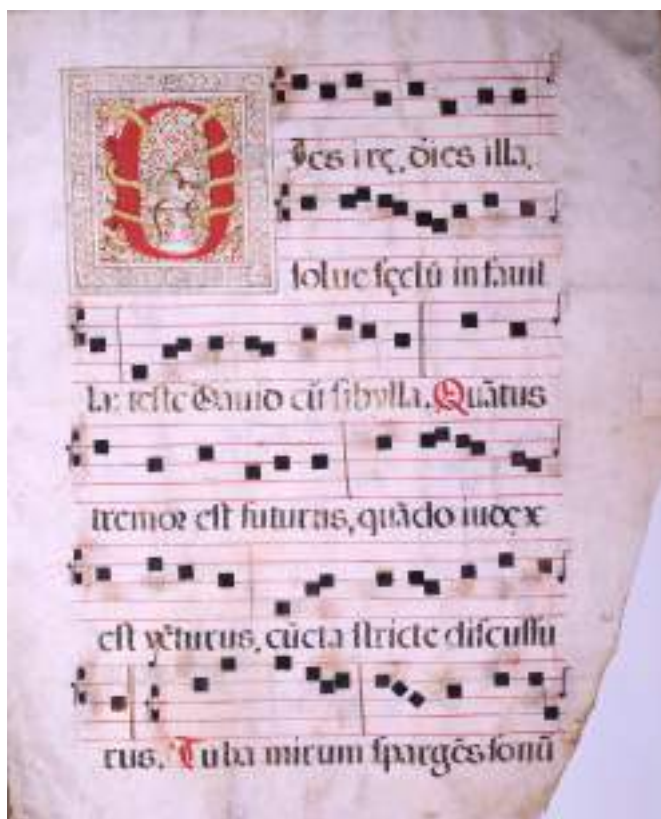 Dies irę, dies illa,
solvet sęclū in favil
la: teste David cū sibylla. Quātus
tremor est futurus, quādo iudex
est vēturus, cūcta stricte discussu
rus. Tuba mirum spargēs sonū